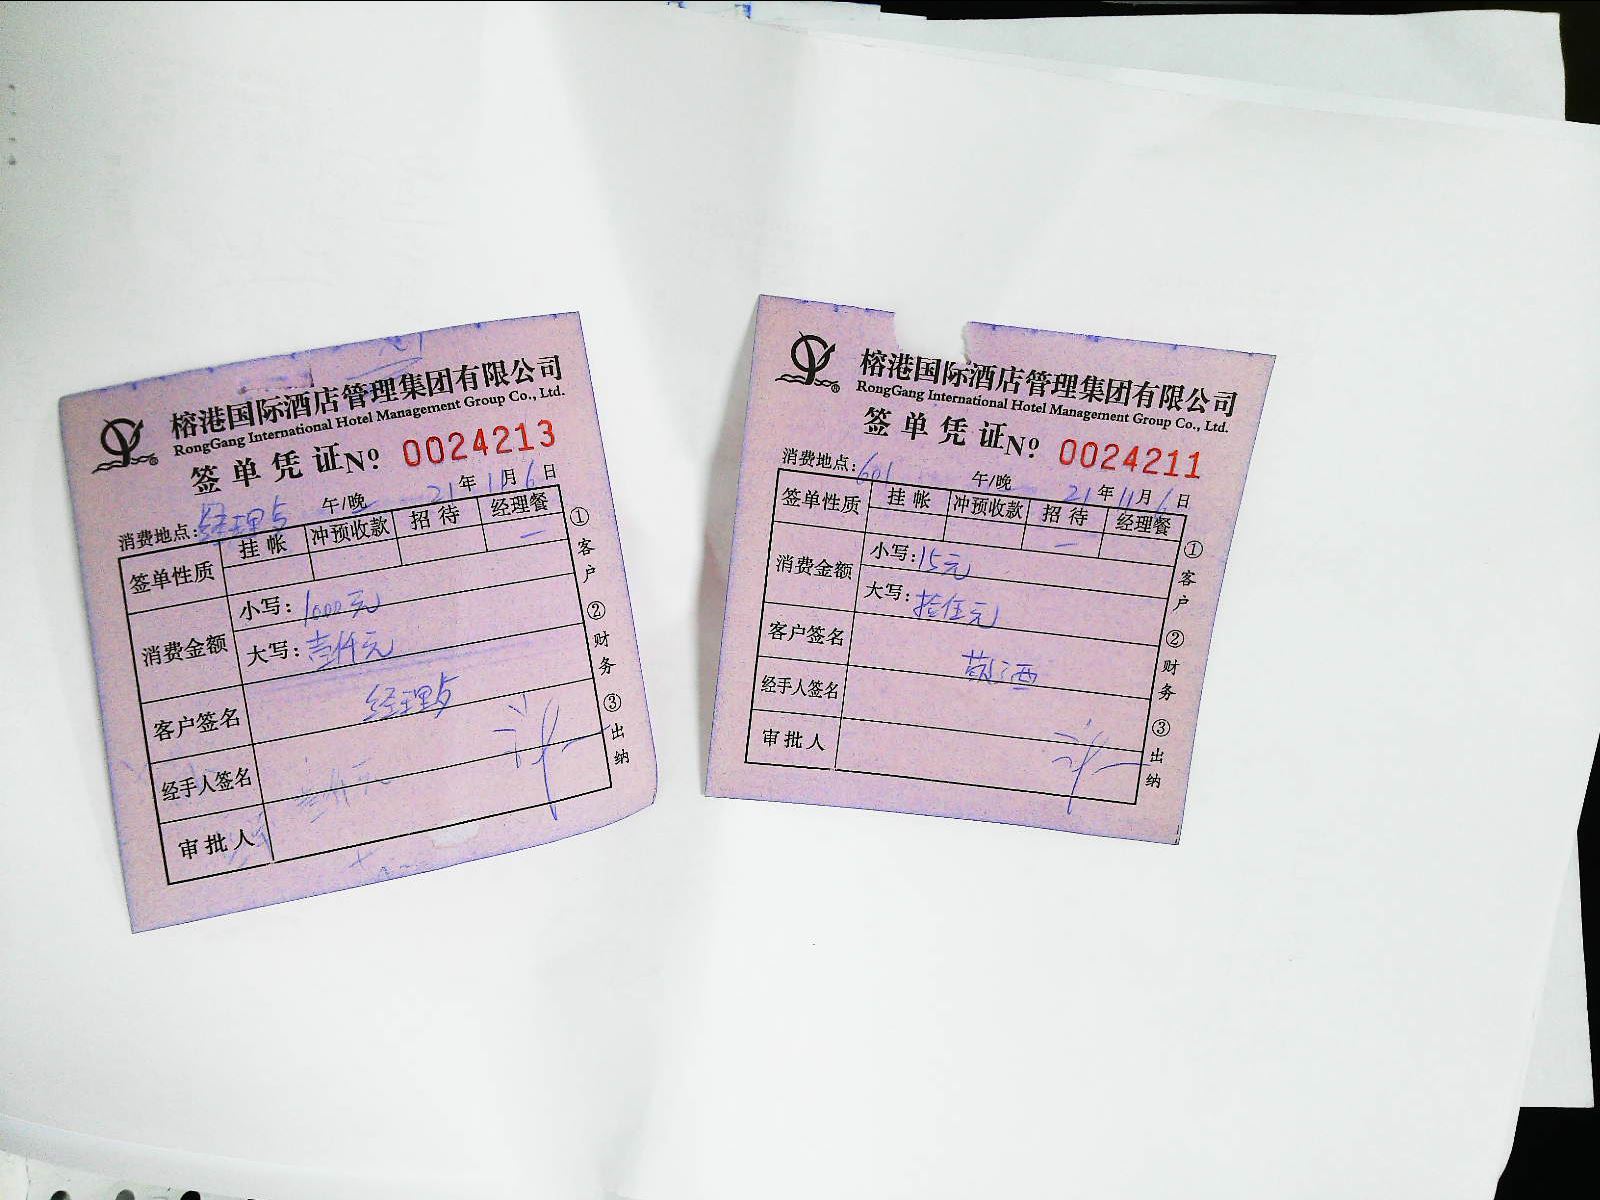 榕港国际酒店管理集团有限公司
RongGang International Hotel Management Group Co., Ltd.
签单凭证№ 0024213
消费地点: 午/晚 21年11月6日
签单性质 挂帐 冲预收款 招待 经理餐
消费金额 小写:1000元
大写:壹仟元
客户签名
经手人签名
审批人
①客户 ②财务 ③出纳
榕港国际酒店管理集团有限公司
RongGang International Hotel Management Group Co., Ltd.
签单凭证№ 0024211
消费地点:601 午/晚 21年11月6日
签单性质 挂帐 冲预收款 招待 经理餐
消费金额 小写:15元
大写:拾伍元
客户签名
经手人签名
审批人
①客户 ②财务 ③出纳